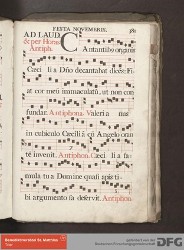 FESTA NOVEMBRIS.
AD LAUD
& per Horas
Antiph.
Cantantib9 organis
Ceci lia Dño decantabat dicēs: Fi
at cor meū immaculatū, ut non con
fundar. Antiphona. Valeria nus
in cubiculo Ceciliā cū Angelo oran
te invenit. Antiphon. Ceci lia fa
mula tua Domine quasi apis ti
bi argumentosa deservit. Antiphon.
DFG